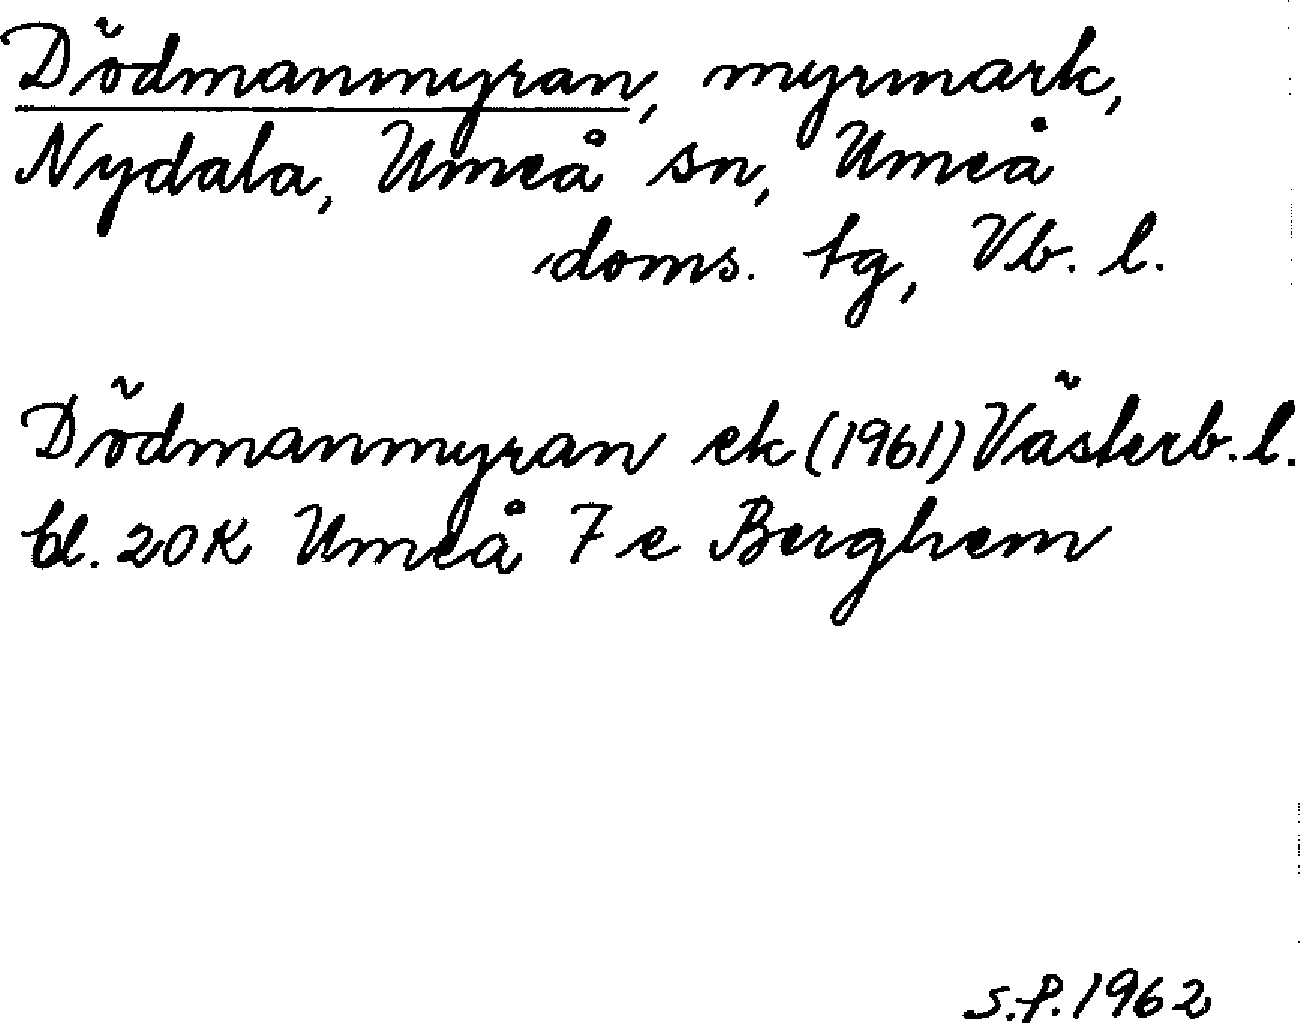 Dödmanmyran, myrmark,
Nydala, Umeå sn, Umeå
doms. tg, Vb. l.
Dödmanmyran ek (1961) Västerb. l.
bl. 20K Umeå 7e Berghem
S.P. 1962